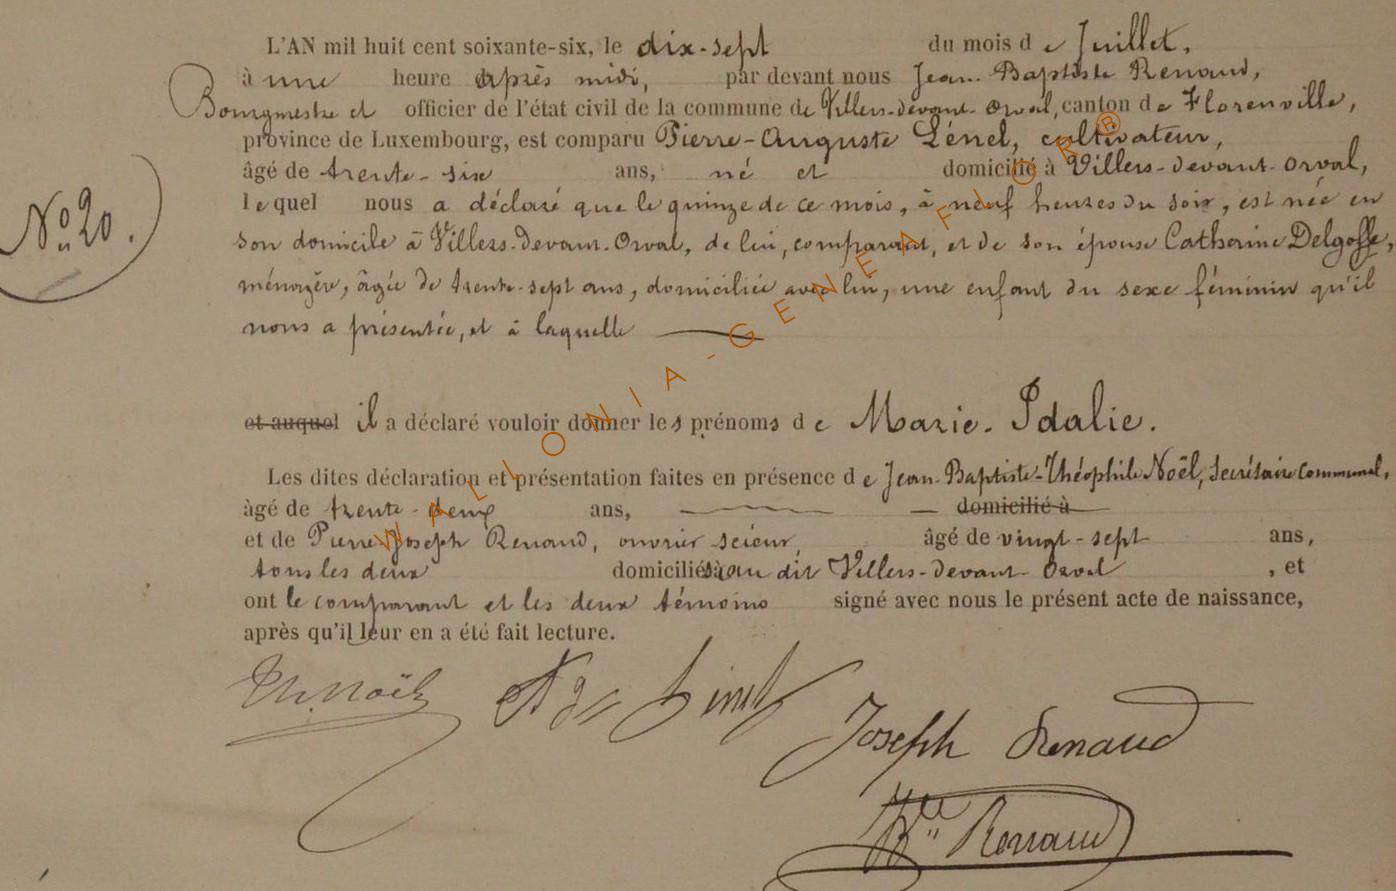 L'AN mil huit cent soixante-six, le dix-sept du mois de Juillet,
à une heure après midi, par devant nous Jean-Baptiste Renaud,
Bourgmestre et officier de l'état civil de la commune de Villers-devant-Orval, canton de Florenville,
province de Luxembourg, est comparu Pierre-Auguste Lénel, cultivateur,
âgé de trente-six ans, né et domicilié à Villers-devant-Orval,
lequel nous a déclaré que le quinze de ce mois, à neuf heures du soir, est née en
N° 20.
son domicile à Villers-devant-Orval, de lui, comparant, et de son épouse Catherine Delgoffe,
ménagère, âgée de trente-sept ans, domiciliée avec lui, une enfant du sexe féminin qu'il
nous a présentée, et à laquelle
et auquel il a déclaré vouloir donner les prénoms de Marie-Idalie.
Les dites déclaration et présentation faites en présence de Jean-Baptiste-Théophile Noël, Secrétaire Communal,
âgé de trente-deux ans, domicilié à
et de Pierre Joseph Renaud, ouvrier scieur, âgé de vingt-sept ans,
tous les deux domiciliés au dit Villers-devant-Orval, et
ont le comparant et les deux témoins signé avec nous le présent acte de naissance,
après qu'il leur en a été fait lecture.
Th. Noël
Joseph Renaud
Bte Renaud
WALLONIA-GENEAFLOR®